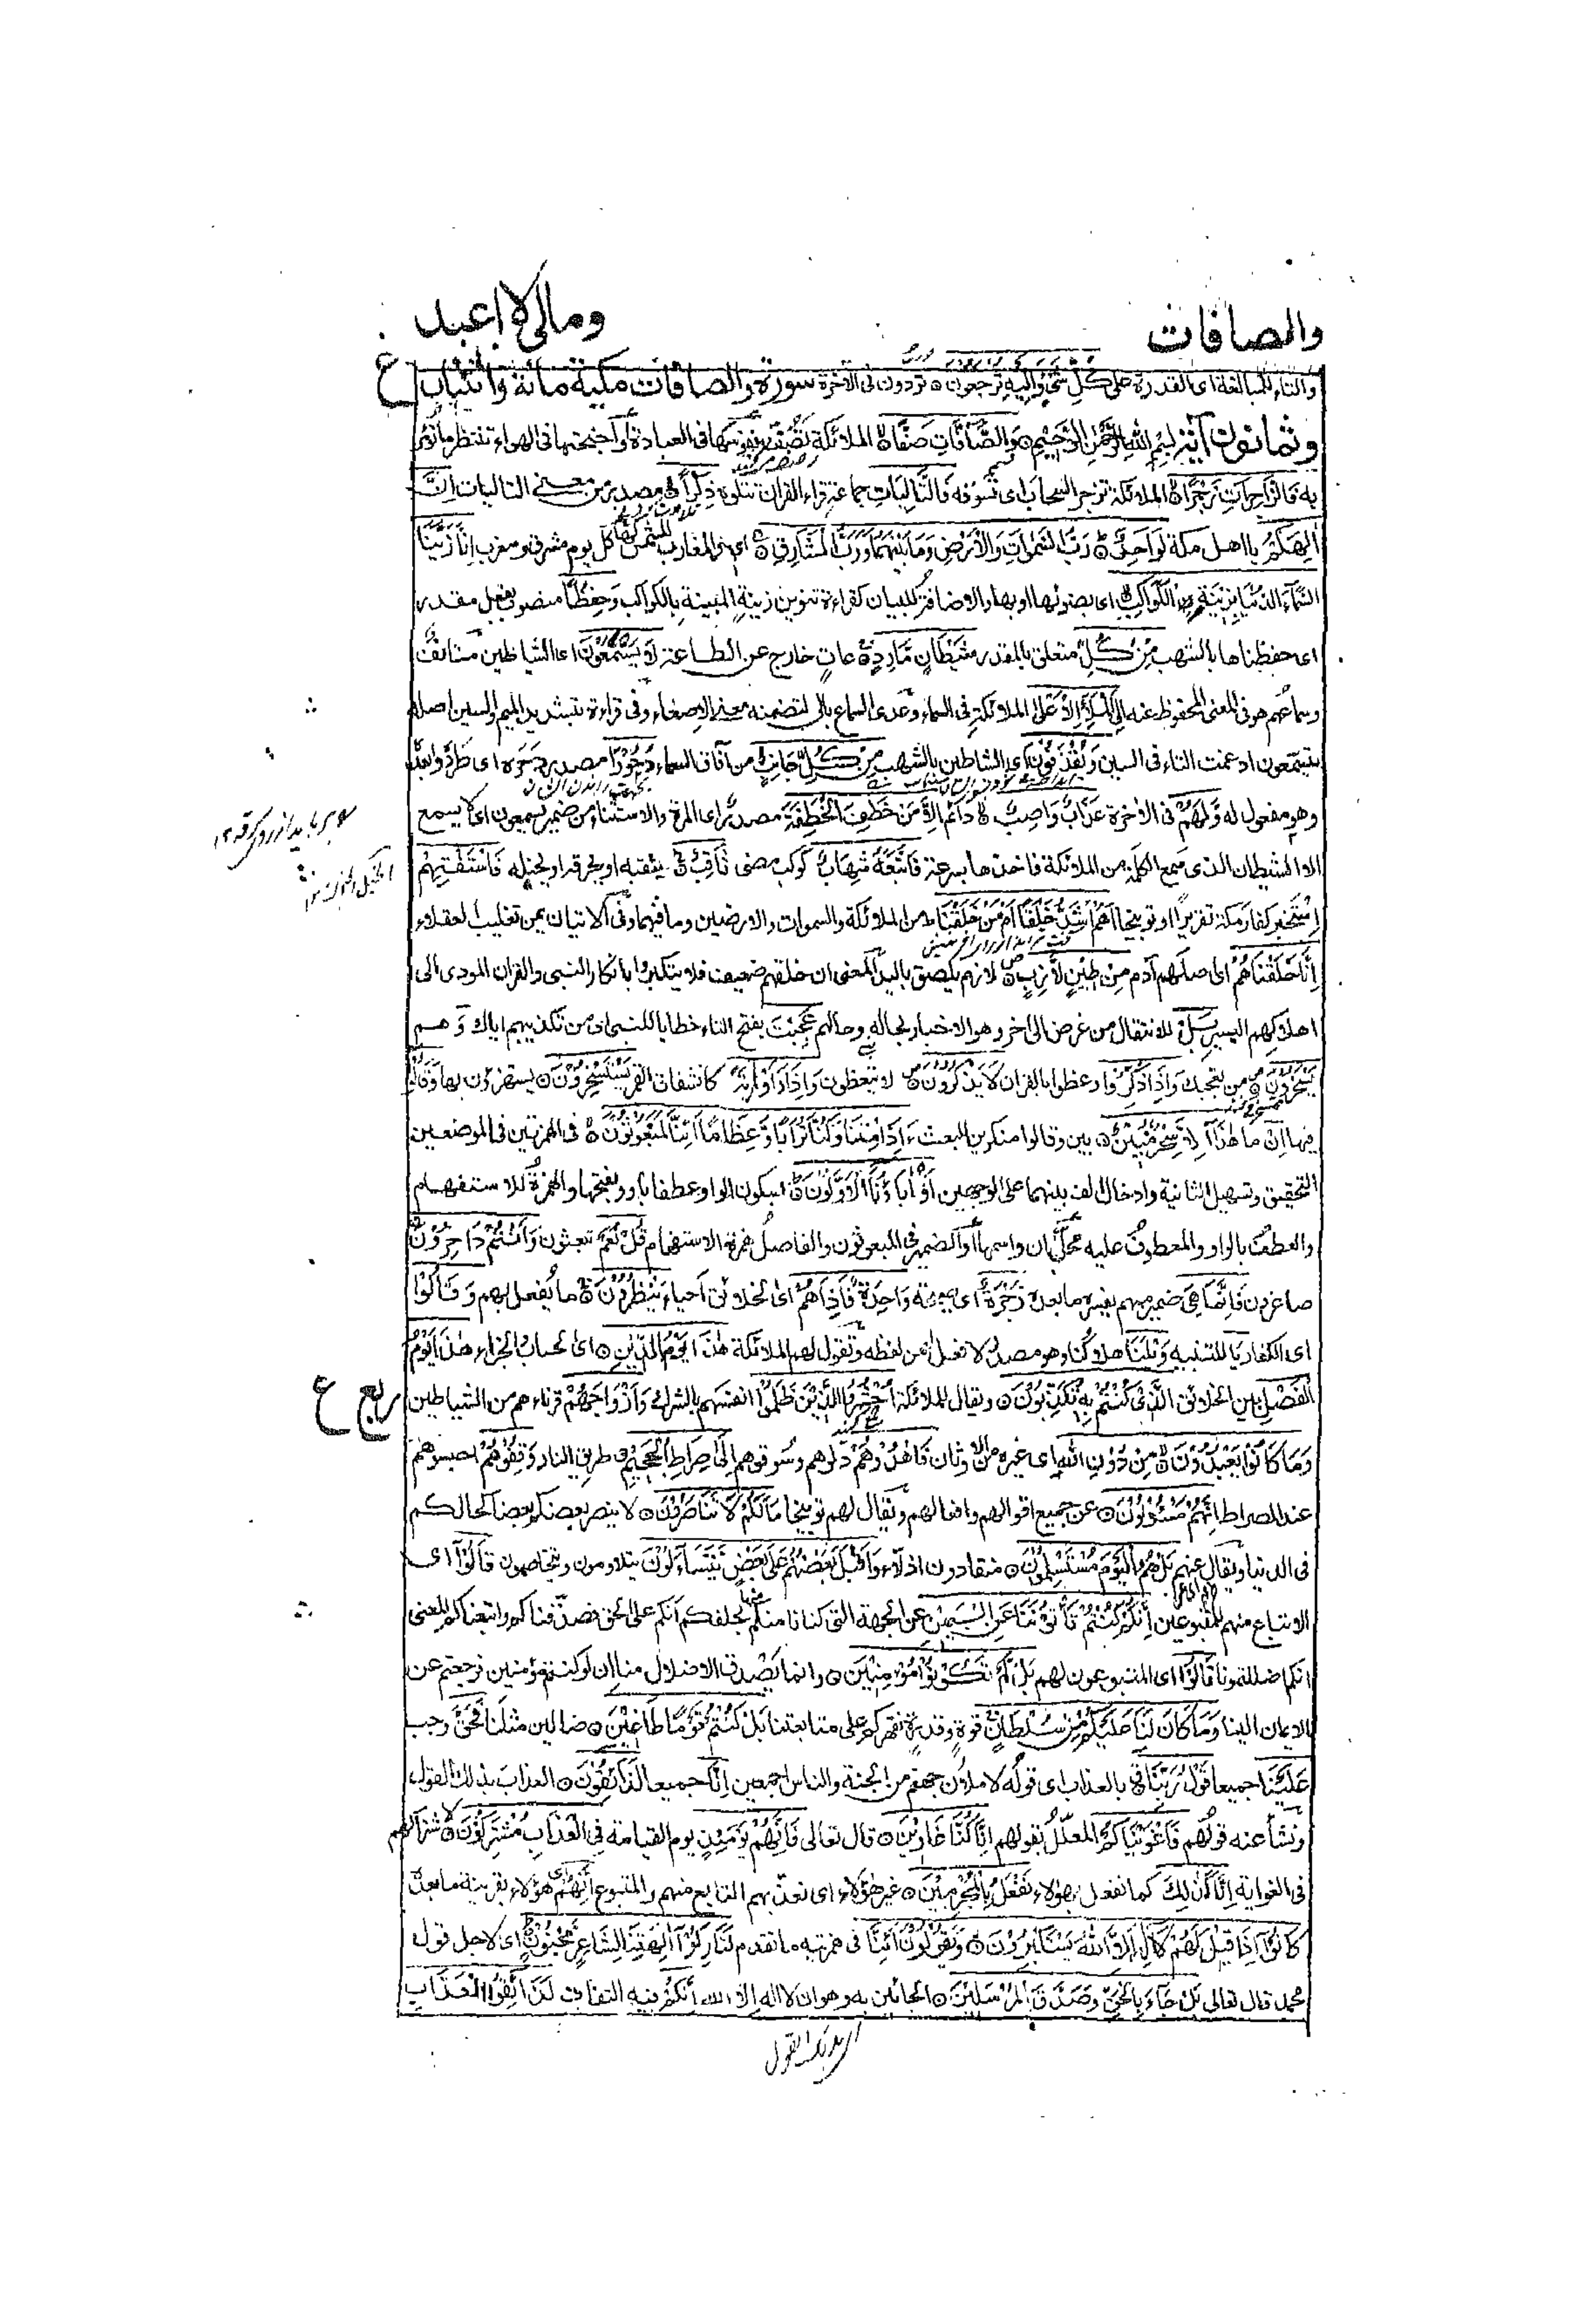 والصافات
ومالی لا اعبد
والتاء للمبالغة ای القدرة علی كُلِّ شَیْءٍ وَّاِلَیْهِ تُرْجَعُوْنَ ۝ تردون فی الآخرة سورة والصافات مكیة مائة واثنتان
وثمانون آیة بِسْمِ اللهِ الرَّحْمٰنِ الرَّحِیْمِ ۝ وَالصَّافَّاتِ صَفًّا ۝ الملائكة تصف نفوسها فی العبادة او اجنحتها فی الهواء تنتظر ما تؤمر
به فَالزَّاجِرَاتِ زَجْرًا ۝ الملائكة تزجر السحاب ای تسوقه فَالتَّالِیَاتِ جماعة قراء القران تتلوه ذِكْرًا ۝ مصدر من معنی التالیات اِنَّ
اِلٰهَكُمْ یا اهل مكة لَوَاحِدٌ ۝ رَبُّ السَّمٰوَاتِ وَالْاَرْضِ وَمَا بَیْنَهُمَا وَرَبُّ الْمَشَارِقِ ۝ ای والمغارب للشمس لها كل یوم مشرق ومغرب اِنَّا زَیَّنَّا
السَّمَآءَ الدُّنْیَا بِزِیْنَةِ نِ الْكَوَاكِبِ ۝ ای بضوئها او بها والاضافة للبیان كقراءة تنوین زینةٍ المبینة بالكواكب وَحِفْظًا منصوب بفعل مقدر
ای حفظناها بالشهب مِنْ كُلِّ متعلق بالمقدر شَیْطَانٍ مَّارِدٍ ۝ عاتٍ خارج عن الطاعة لَا یَسَّمَّعُوْنَ ای الشیاطین مستانف
وسماعهم هو فی المعنی المحفوظ عنه اِلَی الْمَلَاِ الْاَعْلٰی الملائكة فی السماء وعدی السماع بالی لتضمنه معنی الاصغاء وفی قراءة بتشدید المیم والسین اصله
یتسمعون ادغمت التاء فی السین وَیُقْذَفُوْنَ ای الشیاطین بالشهب مِنْ كُلِّ جَانِبٍ ۝ من آفاق السماء دُحُوْرًا مصدر دحره ای طرده وابعده
وهو مفعول له وَّلَهُمْ فی الآخرة عَذَابٌ وَّاصِبٌ ۝ دائم اِلَّا مَنْ خَطِفَ الْخَطْفَةَ مصدر ای المرة والاستثناء من ضمیر یسمعون ای لا یسمع
الا الشیطان الذی سمع الكلمة من الملائكة فاخذها بسرعة فَاَتْبَعَهٗ شِهَابٌ كوكب مضی ثَاقِبٌ ۝ یثقبه او یحرقه او یخبله فَاسْتَفْتِهِمْ
استخبر كفار مكة تقریرًا او توبیخا اَهُمْ اَشَدُّ خَلْقًا اَمْ مَّنْ خَلَقْنَا من الملائكة والسموات والارضین وما فیهما وفی الاتیان بمن تغلیب العقلاء
اِنَّا خَلَقْنَاهُمْ ای اصلهم آدم مِنْ طِیْنٍ لَّازِبٍ ۝ لازم یلصق بالید المعنی ان خلقهم ضعیف فلا یتكبروا بانكار النبی والقران المودی الی
اهلاكهم الیسیر بَلْ للانتقال من غرض الی آخر وهو الاخبار بحاله وحالهم عَجِبْتَ بفتح التاء خطابا للنبی ای من تكذیبهم ایاك وَ هم
یَسْخَرُوْنَ ۝ من تعجبك وَاِذَا ذُكِّرُوْا وعظوا بالقران لَا یَذْكُرُوْنَ ۝ لا یتعظون وَاِذَا رَاَوْا اٰیَةً كانشقاق القمر یَّسْتَسْخِرُوْنَ ۝ یستهزؤن بها وَقَالُوْا
فیها اِنْ مَا هٰذَآ اِلَّا سِحْرٌ مُّبِیْنٌ ۝ بین وقالوا منكرین البعث ءَاِذَا مِتْنَا وَكُنَّا تُرَابًا وَّعِظَامًا اَئِنَّا لَمَبْعُوْثُوْنَ ۝ فی الهمزتین فی الموضعین
التحقیق وتسهیل الثانیة وادخال الف بینهما علی الوجهین اَوَ اٰبَآؤُنَا الْاَوَّلُوْنَ ۝ بسكون الواو عطفا باو وبفتحها والهمزة للاستفهام
والعطف بالواو والمعطوف علیه محل ان واسمها او الضمیر فی المبعوثون والفاصل همزة الاستفهام قُلْ نَعَمْ تبعثون وَاَنْتُمْ دَاخِرُوْنَ
صاغرون فَاِنَّمَا هِیَ ضمیر مبهم یفسره ما بعده زَجْرَةٌ ای صیحة وَّاحِدَةٌ فَاِذَا هُمْ ای الخلائق احیاء یَنْظُرُوْنَ ۝ ما یفعل بهم وَقَالُوْا
ای الكفار یَا للتنبیه وَیْلَنَا هلاكنا وهو مصدر لا فعل له من لفظه وتقول لهم الملائكة هٰذَا یَوْمُ الدِّیْنِ ۝ ای الحساب والجزاء هٰذَا یَوْمُ
الْفَصْلِ بین الخلائق الَّذِیْ كُنْتُمْ بِهٖ تُكَذِّبُوْنَ ۝ ویقال للملائكة اُحْشُرُوا الَّذِیْنَ ظَلَمُوْا انفسهم بالشرك وَاَزْوَاجَهُمْ قرناءهم من الشیاطین
ربع ع
وَمَا كَانُوْا یَعْبُدُوْنَ ۝ مِنْ دُوْنِ اللهِ ای غیره من الاوثان فَاهْدُوْهُمْ دلوهم وسوقوهم اِلٰی صِرَاطِ الْجَحِیْمِ ۝ طریق النار وَقِفُوْهُمْ احبسوهم
عند الصراط اِنَّهُمْ مَّسْئُوْلُوْنَ ۝ عن جمیع اقوالهم وافعالهم ویقال لهم توبیخا مَا لَكُمْ لَا تَنَاصَرُوْنَ ۝ لا ینصر بعضكم بعضا كحالكم
فی الدنیا ویقال عنهم بَلْ هُمُ الْیَوْمَ مُسْتَسْلِمُوْنَ ۝ منقادون اذلاء وَاَقْبَلَ بَعْضُهُمْ عَلٰی بَعْضٍ یَّتَسَآءَلُوْنَ یتلاومون ویتخاصمون قَالُوْآ ای
الاتباع منهم للمتبوعین اِنَّكُمْ كُنْتُمْ تَاْتُوْنَنَا عَنِ الْیَمِیْنِ عن الجهة التی كنا نامنكم منها بحلفكم انكم علی الحق فصدقناكم واتبعناكم المعنی
انكم اضللتمونا قَالُوْا ای المتبوعون لهم بَلْ لَّمْ تَكُوْنُوْا مُؤْمِنِیْنَ ۝ وانما یصدق الاضلال منا ان لو كنتم مؤمنین فرجعتم عن
الایمان الینا وَمَا كَانَ لَنَا عَلَیْكُمْ مِّنْ سُلْطَانٍ قوة وقدرة تقهركم علی متابعتنا بَلْ كُنْتُمْ قَوْمًا طَاغِیْنَ ۝ ضالین مثلنا فَحَقَّ وجب
عَلَیْنَا جمیعا قَوْلُ رَبِّنَا بالعذاب ای قوله لاملأن جهنم من الجنة والناس اجمعین اِنَّا جمیعا لَذَآئِقُوْنَ ۝ العذاب بذلك القول
ونشأ عنه قولهم فَاَغْوَیْنَاكُمْ المعلل بقولهم اِنَّا كُنَّا غَاوِیْنَ ۝ قال تعالی فَاِنَّهُمْ یَوْمَئِذٍ یوم القیامة فِی الْعَذَابِ مُشْتَرِكُوْنَ ۝ لاشتراكهم
فی الغوایة اِنَّا كَذٰلِكَ كما نفعل بهؤلاء نَفْعَلُ بِالْمُجْرِمِیْنَ ۝ غیر هؤلاء ای نعذبهم التابع منهم والمتبوع اِنَّهُمْ ای هؤلاء بقرینة ما بعده
كَانُوْآ اِذَا قِیْلَ لَهُمْ لَآ اِلٰهَ اِلَّا اللهُ یَسْتَكْبِرُوْنَ ۝ وَیَقُوْلُوْنَ اَئِنَّا فی همزتیه ما تقدم لَتَارِكُوْآ اٰلِهَتِنَا لِشَاعِرٍ مَّجْنُوْنٍ ۝ ای لاجل قول
محمد قال تعالی بَلْ جَآءَ بِالْحَقِّ وَصَدَّقَ الْمُرْسَلِیْنَ ۝ الجائین به وهو ان لا اله الا الله اِنَّكُمْ فیه التفات لَذَآئِقُوا الْعَذَابِ